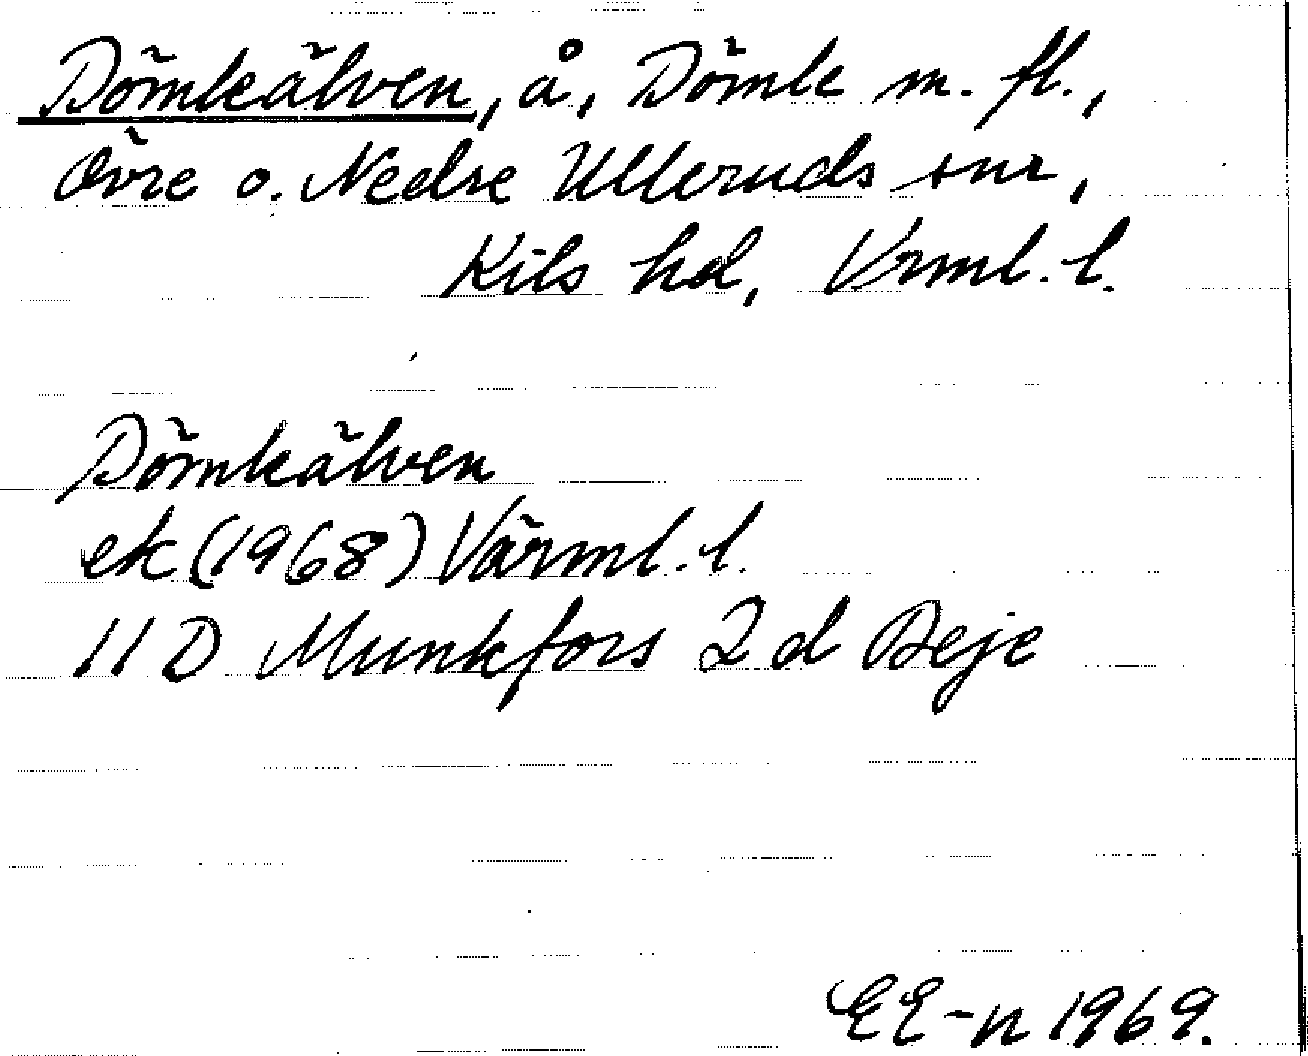 Dömkälven, å, Dömle m. fl.,
Övre o. Nedre Ulleruds snr,
Kils hd, Vrml. l.
Dömkälven
ek (1968) Värml. l.
11 D Munkfors 2 d Deje
EE-n 1969.